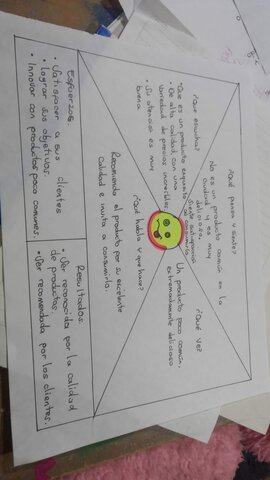 ¿Qué piensa y siente?
No es un producto común en la
ciudad y es muy
delicioso,
Siente autoconfianza
al consumirlo
¿Qué escucha?
• Que es un producto exquisito
• De alta calidad con una
variedad de precios increíbles.
• Su atención es muy
buena.
¿Qué ve?
Un producto poco común,
extremadamente delicioso
¿Qué habla y que hace?
Recomienda el producto por su excelente
calidad e invita a consumirlo.
Esfuerzos
• Satisfacer a sus clientes
• lograr sus objetivos.
• Innovar con productos poco comunes
Resultados.
• Ser reconocida por la calidad
de productos.
• Ser recomendada por los clientes.